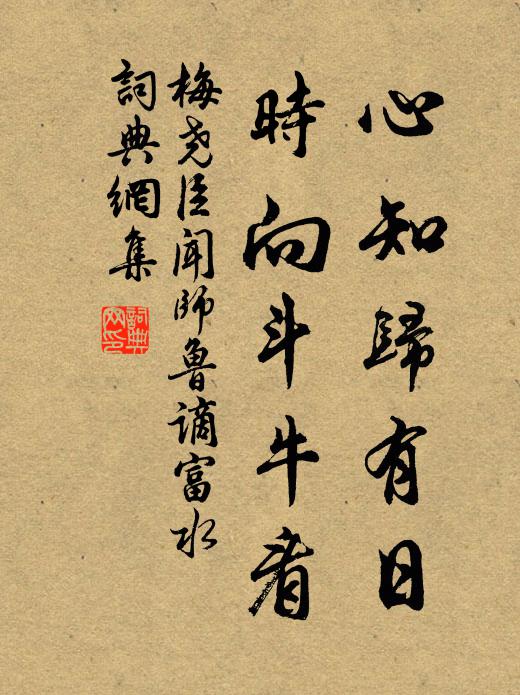 心知歸有日
時向斗牛看
梅尧臣闻師魯謫富水
詞典網集
詞典网印